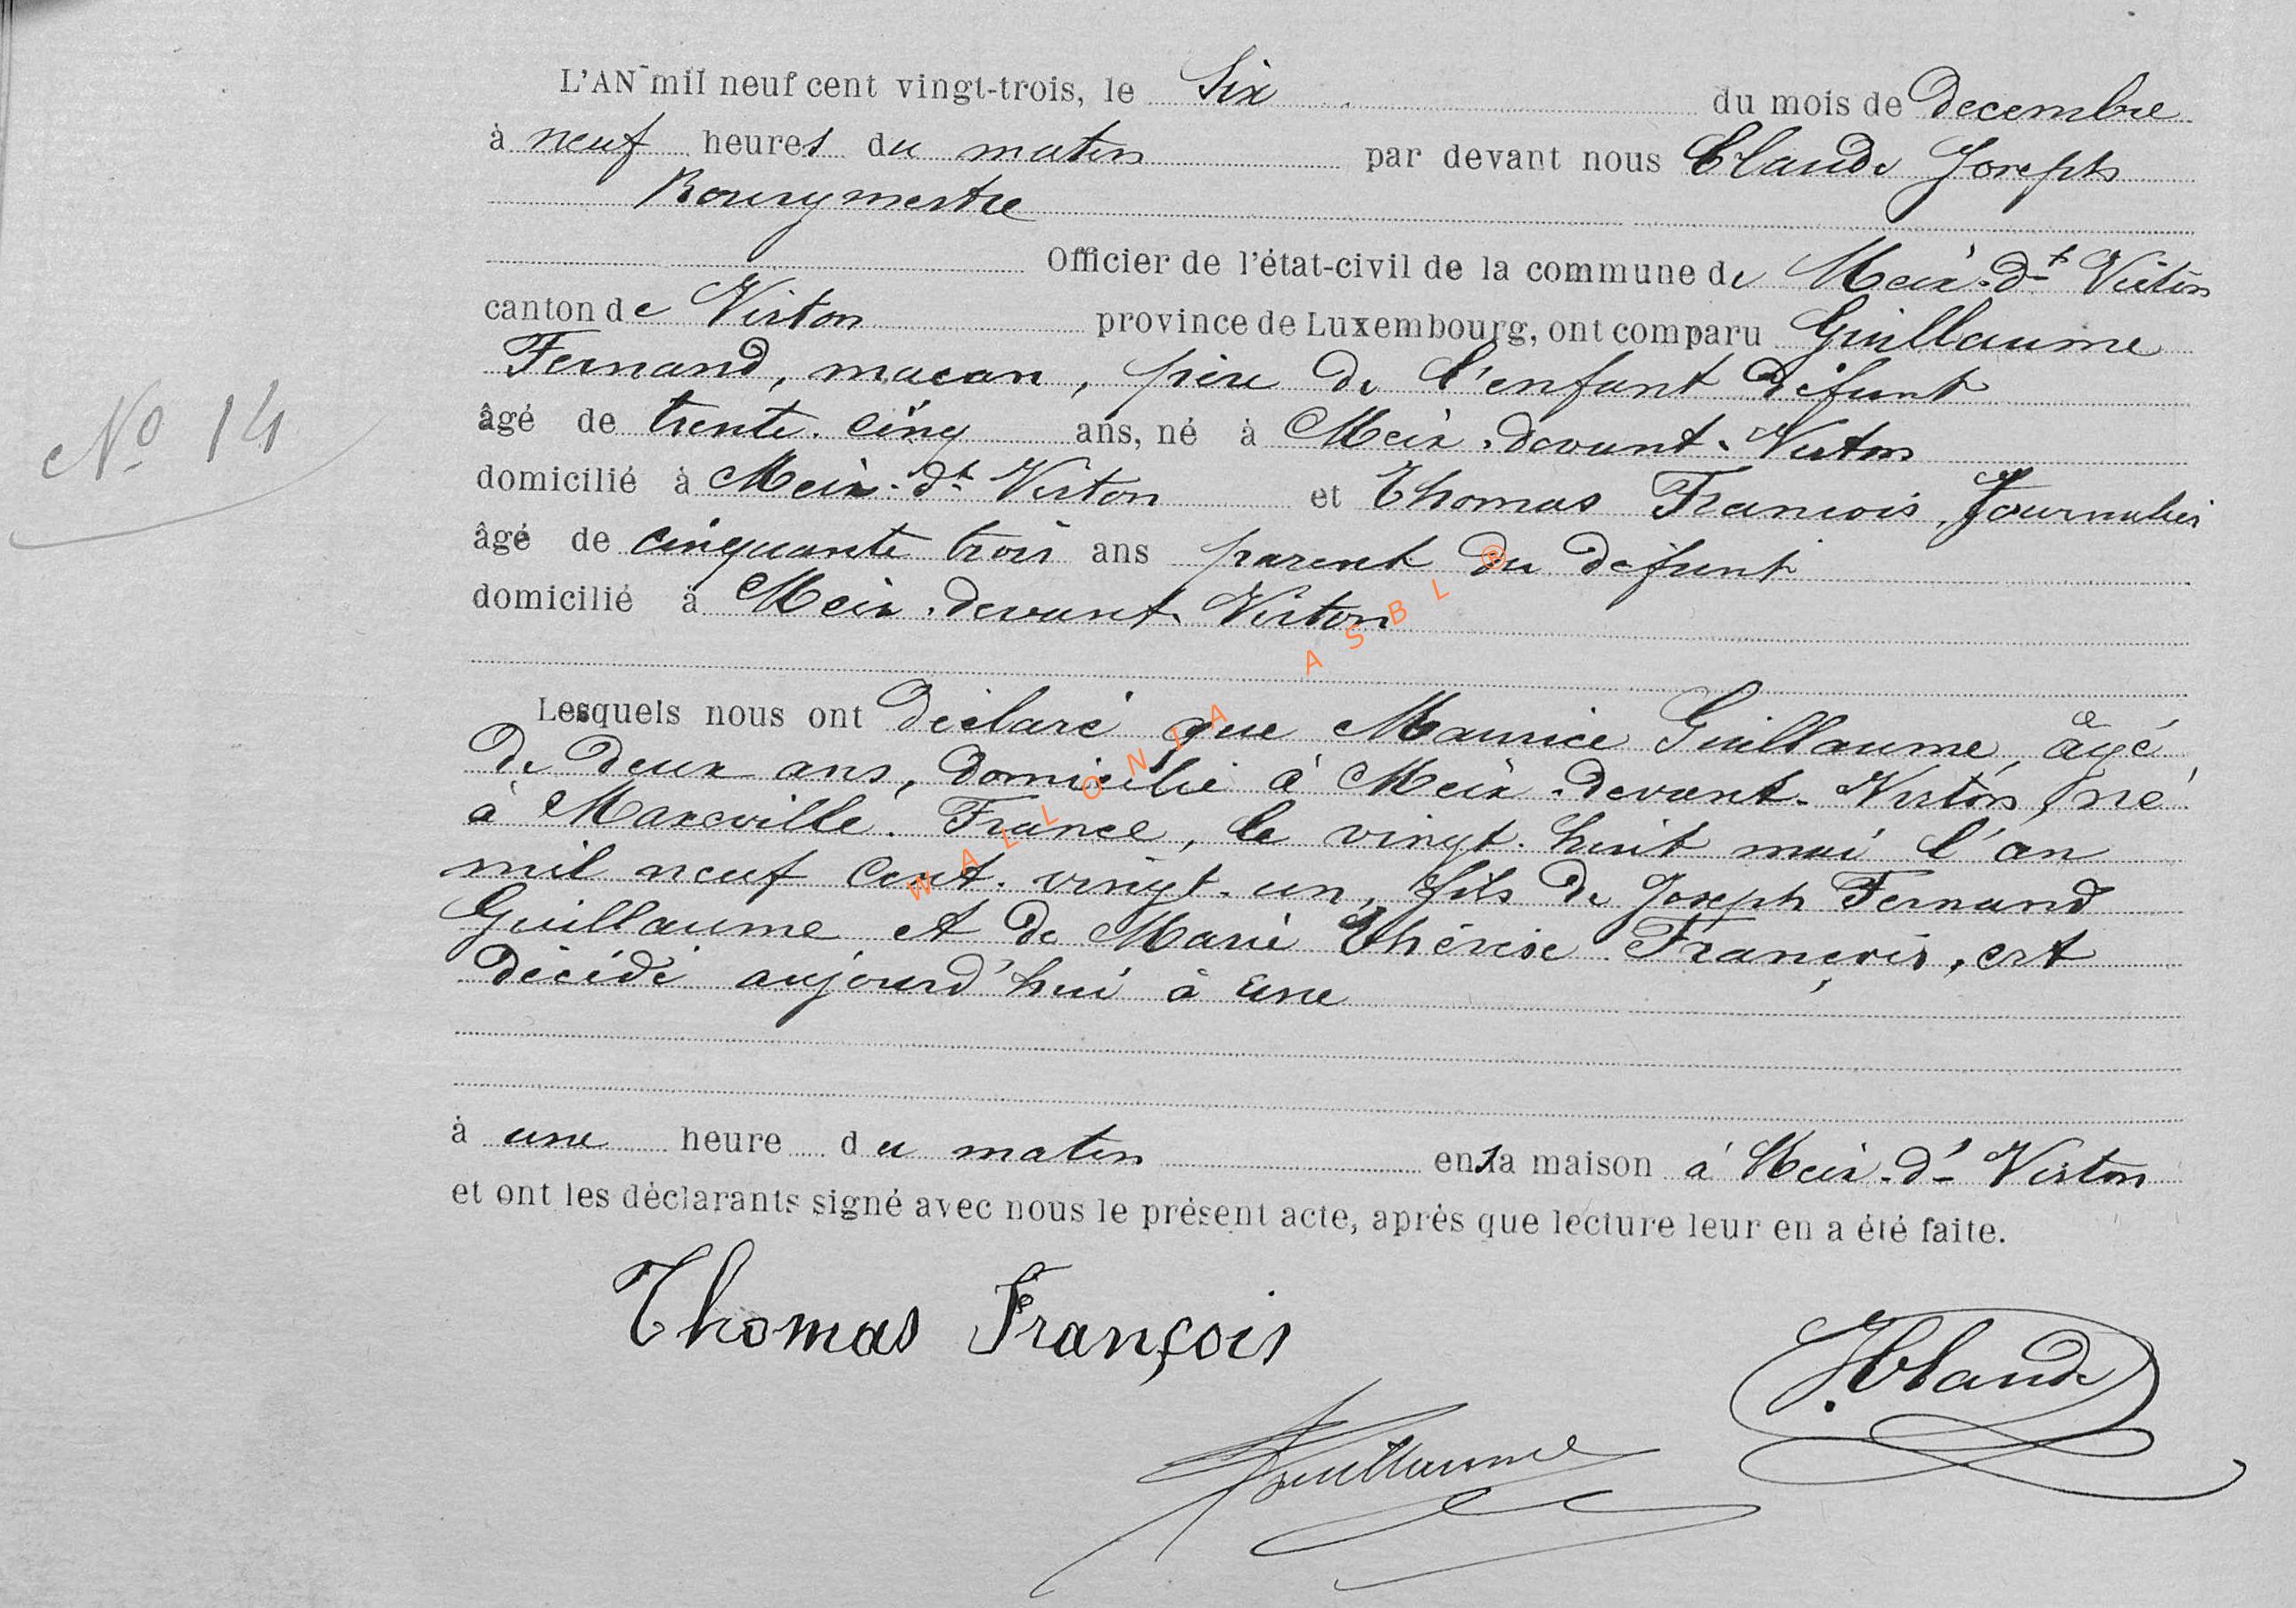 L'AN mil neuf cent vingt-trois, le Six du mois de decembre
à neuf heures du matin par devant nous Claude Joseph
Bourgmestre
Officier de l'état-civil de la commune de Meix-dt Virton
canton de Virton province de Luxembourg, ont comparu Guillaume
Fernand, macon, père de l'enfant défunt
âgé de trente-cinq ans, né à Meix-devant-Virton
N° 14
domicilié à Meix-dt Virton et Thomas Francois, Journalier
âgé de cinquante trois ans parent du défunt
domicilié à Meix-devant-Virton
Lesquels nous ont déclaré que Maurice Guillaume, âgé
de deux ans, domicilié à Meix-devant-Virton, né
à Maxeville. France, le vingt-huit mai l'an
mil neuf cent-vingt-un, fils de Joseph Fernand
Guillaume et de Marie Thérèse François, est
décédé aujourd'hui à une
à une heure du matin en sa maison à Meix-dt Virton
et ont les déclarants signé avec nous le présent acte, après que lecture leur en a été faite.
Thomas François
JClaude
Guillaume
WALLONIA ASBL ®